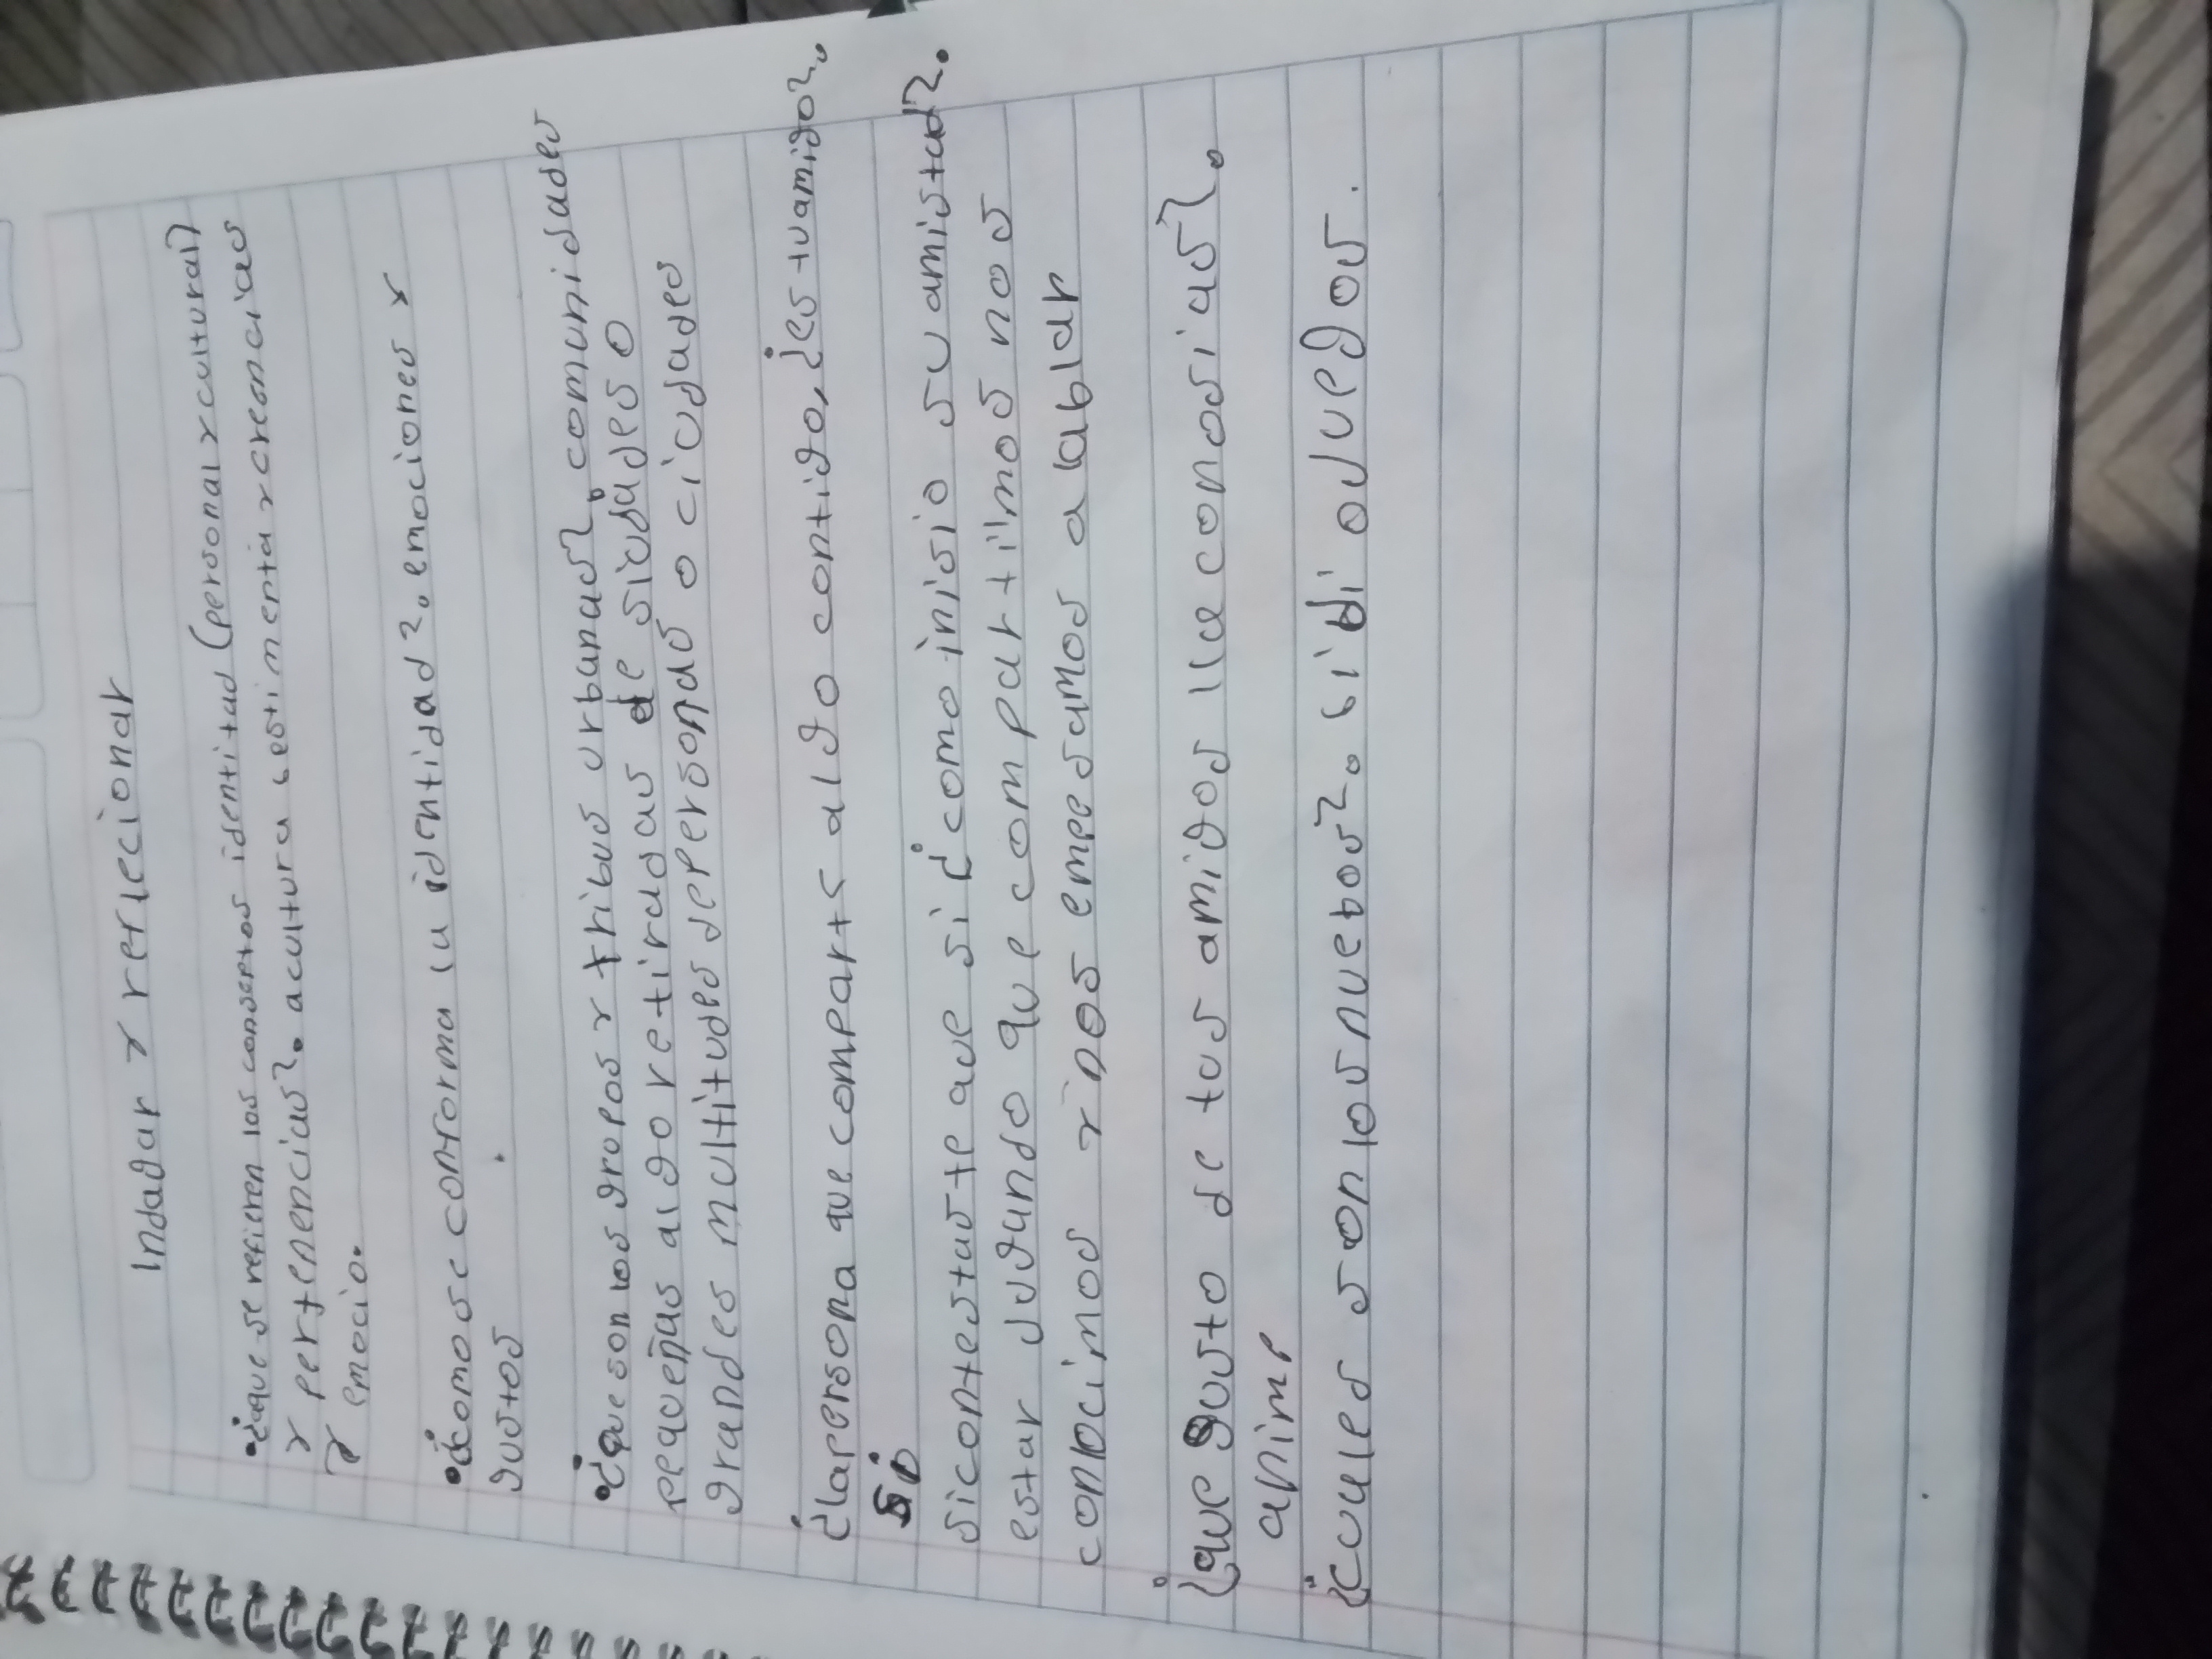 Indagar y reflecionar
¿aque se refieren los consertos identitad (personal y cultural)
y pertenencias?. acultura vestimenta y creencias
y emocio.
¿como se conforma la identidad?. emociones y
gustos
¿que son los grupos y tribus urbanas?. comunidades
pequeñas algo retiradas de siudades o
grandes multitudes de personas o ciudades
¿la persona que comparts algo contigo, ¿es tu amigo?.
si
si contestaste que si ¿como inisio su amistad?.
estar jugando que compartimos nos
conocimos y nos empesamos a ablar
¿que gusto de tus amigos lla conosias?.
anime
¿cuales son los nuebos?. vidi ojuegos.